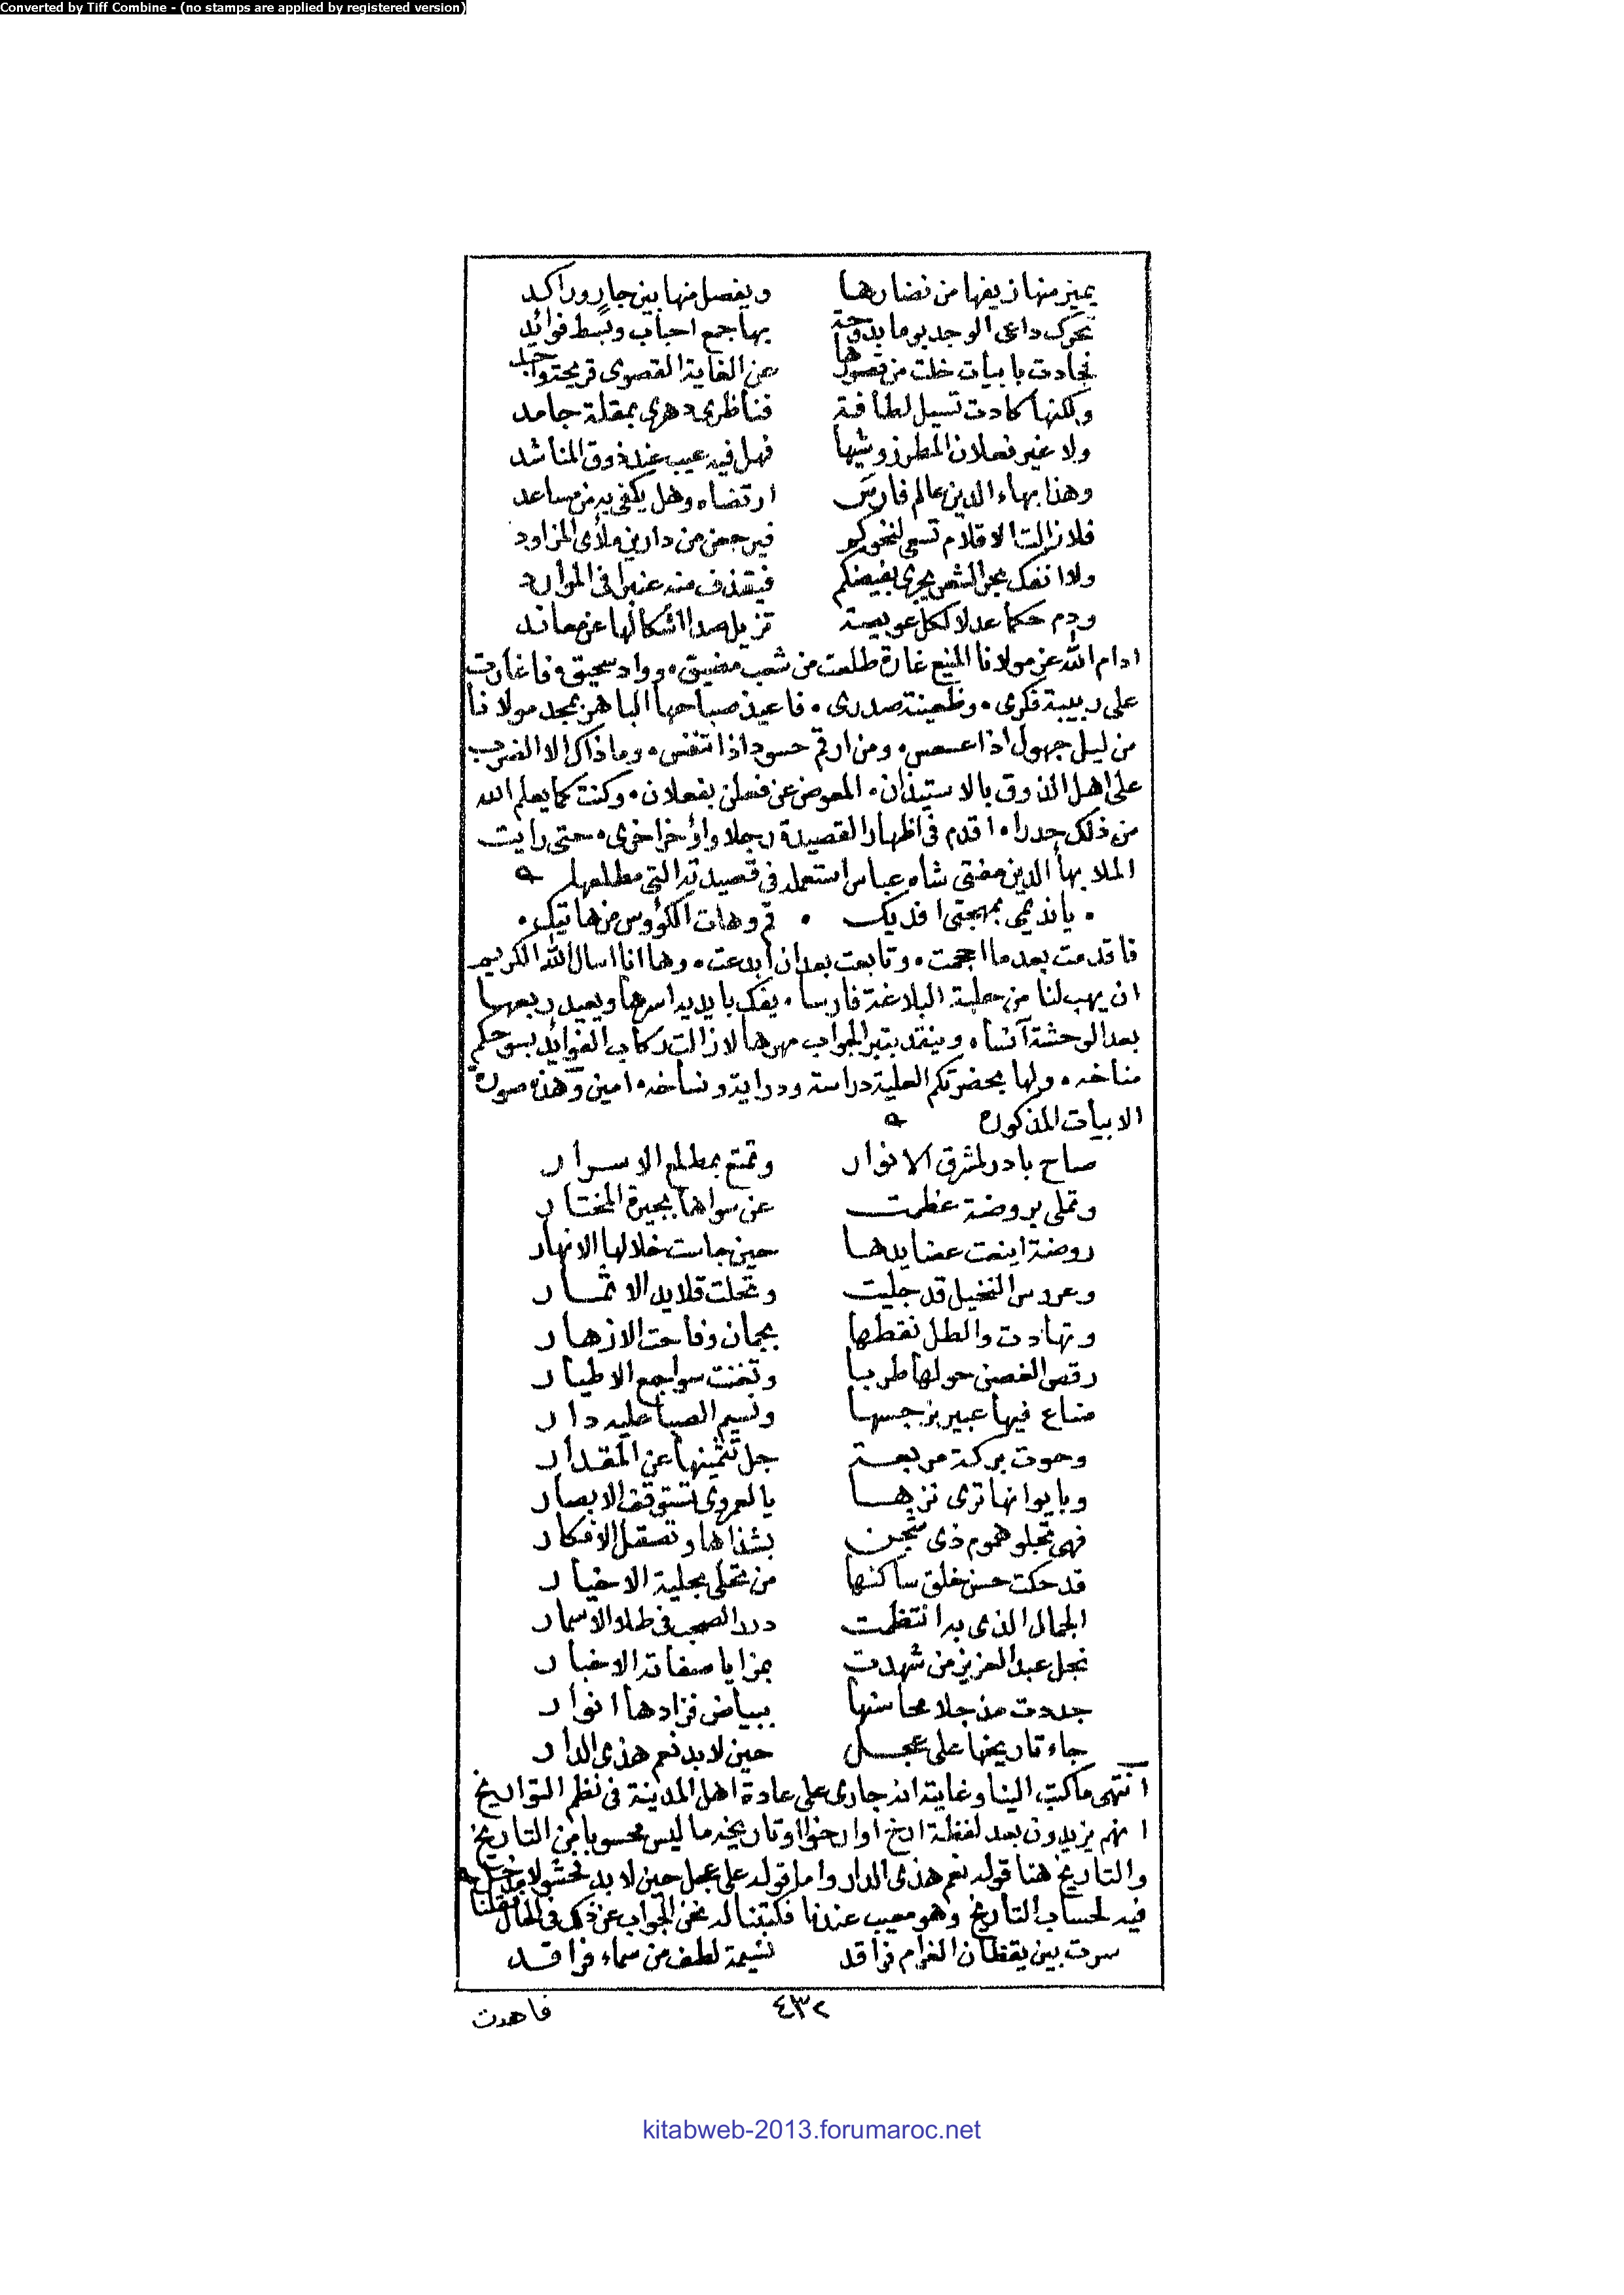 Converted by Tiff Combine - (no stamps are applied by registered version)
يميز منها زيفها من نضارها ويفصل منها بين جار وراكد
تحرك داعى الوجد يوما بدوحة بها جمع احباب وبسط فوائد
فجادت بابيات خلت من قصورها عن الغاية القصوى قريحة واجد
ولكنها كادت تسيل لطافة فناظرى دهرى بمقلة جامد
ولا غير فعلان المطرز وشيها فهل فيه عيب عند ذوق المناشد
وهذا بهاء الدين عالم فارس ارتضاه وهل يكفى به من مساعد
فلا زالت الاقلام تسعى لنحوكم فيرجعن من دارين ملأى المزاود
ولا انفك بحر الشعر يجرى بفيضكم فيقذف منه عنبرا فى الموارد
ودم حكما عدلا لكل عويصة تزيل صدا اشكالها عن معاند
ادام الله عز مولانا المنيع غارة طلعت من شعب مضيق، وواد سحيق، فاغارت
على ربيبة فكرى، وظعينة صدرى، فاعيذ صباحها الباهر بمجد مولانا
من ليل جهول اذا عسعس، ومن ارقم حسود اذا تنفس، وما ذاك الا الضرب
على اهل الذوق بالاستيذان، المعوض عن فعلن بفعلان، وكنت كما يعلم الله
من ذلك حدرا، اقدم فى اظهار القصيدة رجلا واؤخر اخرى، حتى رايت
الملا بهأ الدين مفتى شاه عباس استعمله فى قصيدته التى مطلعها
. يا نديمى بمهجتى افديك . قم وهات الكؤوس من هاتيك .
فاقدمت بعد ما احجمت، وتابعت بعد ان ابدعت، وها انا اسال الله الكريم
ان يهب لنا من حلبة البلاغة فارسا، يفك بايديه اسرها ويعيد ربعها
بعد الوحشة آنسا، وينقد بتبر الجواب مهرها لا زالت ركاب الفوائد بسوحكم
مناخه، ولها بحضرتكم العلية دراسة ودراية ونساخه، امين وهذه صورة
الابيات المذكورة
صاح بادر لمشرق الانوار وتمتع بمطلع الاسرار
وتملى بروضة عظمت عن سواها بجيرة المختار
روضة اينعت عضايدها حين جاست خلالها الانهار
وعروس النخيل قد جليت وتحلت قلايد الاثمار
وتهادت والطل نقطها بجمان وفاحت الازهار
رقص الغصن حولها طربا وتغنت سواجع الاطيار
ضاع فيها عبير نرجسها ونسيم الصبا عليه دار
وحوت بركة مربعة جل تثمينها عن المقدار
وبايوانها ترى نزها يا لعمرى تستوقف الابصار
فهى تجلو هموم ذى شجن بشذاها وتصقل الافكار
قد حكت حسن خلق ساكنها من تحلى بحلية الاخيار
الجمال الذى به انتظمت درر الصحب فى طلا الاسمار
نجل عبد العزيز من شهدت بمزايا صفاته الاخبار
جددت مذ جلا محاسنها ببياض فزادها انوار
جاء تاريخها على عجل حين لا بد نعم هذى الدار
انتهى ما كتب الينا وغاية انه جارى على عادة اهل المدينة فى نظم التواريخ
انهم يزيدون بعد لفظة ارخ او ارخوا او تاريخه ما ليس محسوبا من التاريخ
والتاريخ هنا قوله نعم هذى الدار واما قوله على عجل حين لا بد فحشو لا مدخل
فيه لحساب التاريخ وهو معيب عندنا فكتبنا له نحن الجواب عن ذلك فى الحال فقلنا
سرت بين يقظان الغرام فراقد نسيمة لطف من سماء فراقد
٤٣٢
فاهدت
kitabweb-2013.forumaroc.net